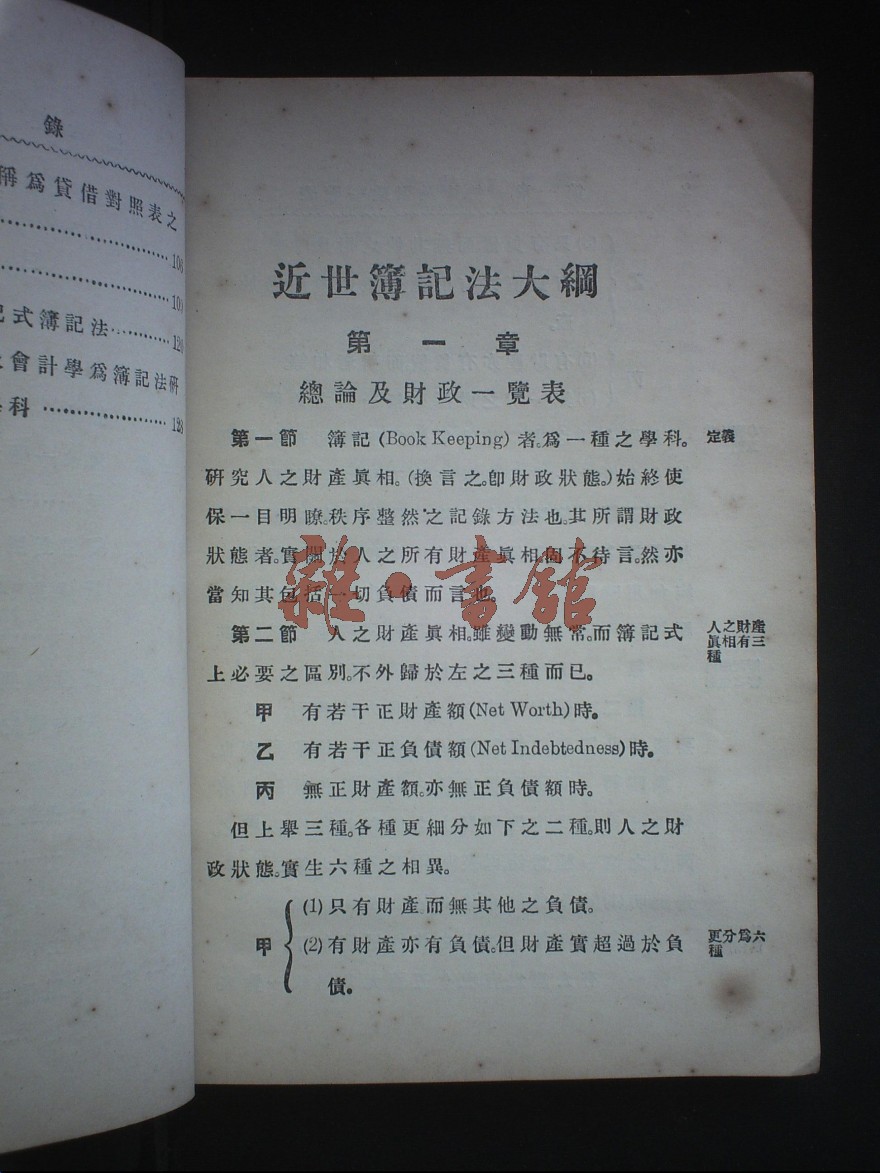 錄
稱爲貸借對照表之
式簿記法
120
會計學爲簿記法研
科
近世簿記法大綱
第一章
總論及財政一覽表
第一節 簿記(Book Keeping)者。爲一種之學科。
定義
研究人之財產眞相。(換言之。卽財政狀態。)始終使
保一目明瞭。秩序整然之記錄方法也。其所謂財政
狀態者。實關於人之所有財產眞相。固不待言。然亦
當知其包括一切負債而言也。
雜·書館
第二節 人之財產眞相。雖變動無常。而簿記式
人之財產
眞相有三
種
上必要之區別。不外歸於左之三種而已。
甲 有若干正財產額(Net Worth)時。
乙 有若干正負債額(Net Indebtedness)時。
丙 無正財產額。亦無正負債額時。
但上舉三種。各種更細分如下之二種。則人之財
政狀態。實生六種之相異。
甲
(1)只有財產而無其他之負債。
(2)有財產亦有負債。但財產實超過於負
債。
更分爲六
種